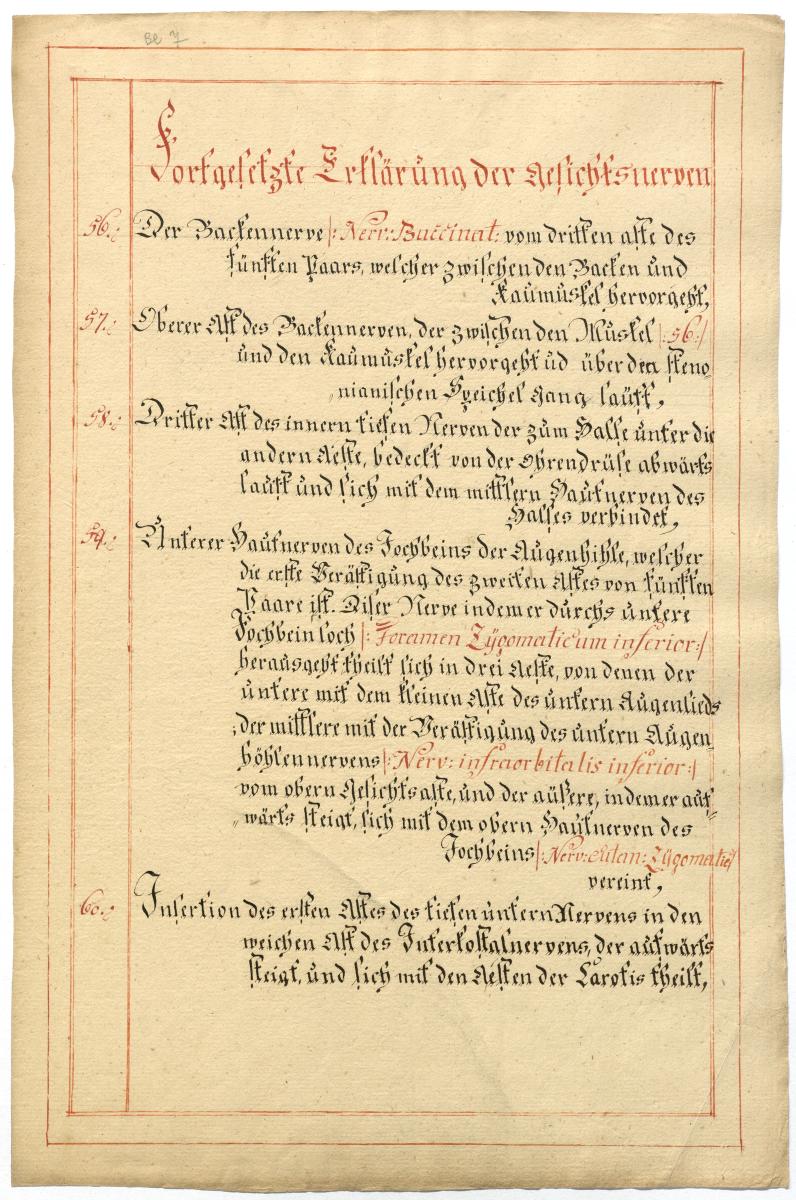 Be 7
Fortgesetzte Erklärung der Gesichtsnerven
56. Der Backennerve |: Nerv: Buccinat: vom dritten aste des
fünften Paars, welcher zwischen den Backen und
Kaumuskel hervorgeht,
57. Oberer Ast des Backennerven, der zwischen den Muskel |: 56 :|
und den Kaumuskel hervorgeht ud über den steno-
„nianischen Speichel Gang lauft,
58. Dritter Ast des innern tiefen Nerven der zum Halse unter die
andern Aeste, bedeckt von der Ohrendrüse abwärts
lauft und sich mit dem mittlern Hautnerven des
Halses verbindet,
59. Unterer Hautnerven des Jochbeins der Augenhihle, welcher
die erste Verästigung des zweiten Astes von fünften
Paare ist. Diser Nerve indem er durchs untere
Jochbein loch |: Foramen Zÿgomaticum inferior :|
herausgeht theilt sich in drei Aeste, von denen der
untere mit dem kleinen Aste des untern Augenlieds
der mittlere mit der Verästigung des untern Augen-
höhlennervens |: Nerv: infraorbitalis inferior :|
vom obern Gesichtsaste, und der äußere, indem er auf-
„wärts steigt, sich mit dem obern Hautnerven des
Jochbeins |: Nerv: cutan: Zÿgomatic/
vereint,
60. Insertion des ersten Astes des tiefen untern Nervens in den
weichen Ast des Interkostalnervens, der aufwärts
steigt, und sich mit den Aesten der Carotis theilt,